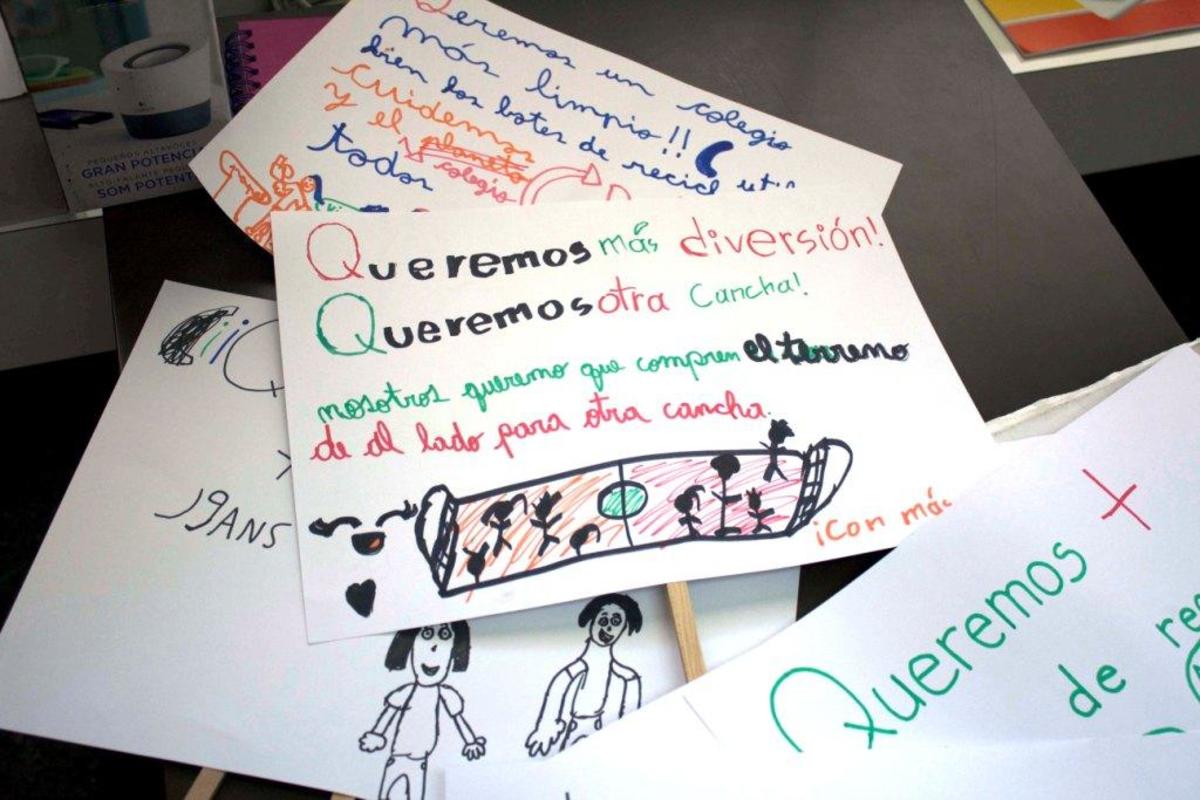 Queremos un colegio
más limpio!!
bien los botes de recicl
Cuidemos
y el planeta
colegio
todos
PEQUEÑOS ALTAVOCES
GRAN POTENCIA
SOM POTENT
Queremos más diversión!
Queremos otra Cancha!
nosotros queremo que compren el terreno
de al lado para otra cancha.
¡Con má
¡¡¡Q
19ANS
Queremos +
de re